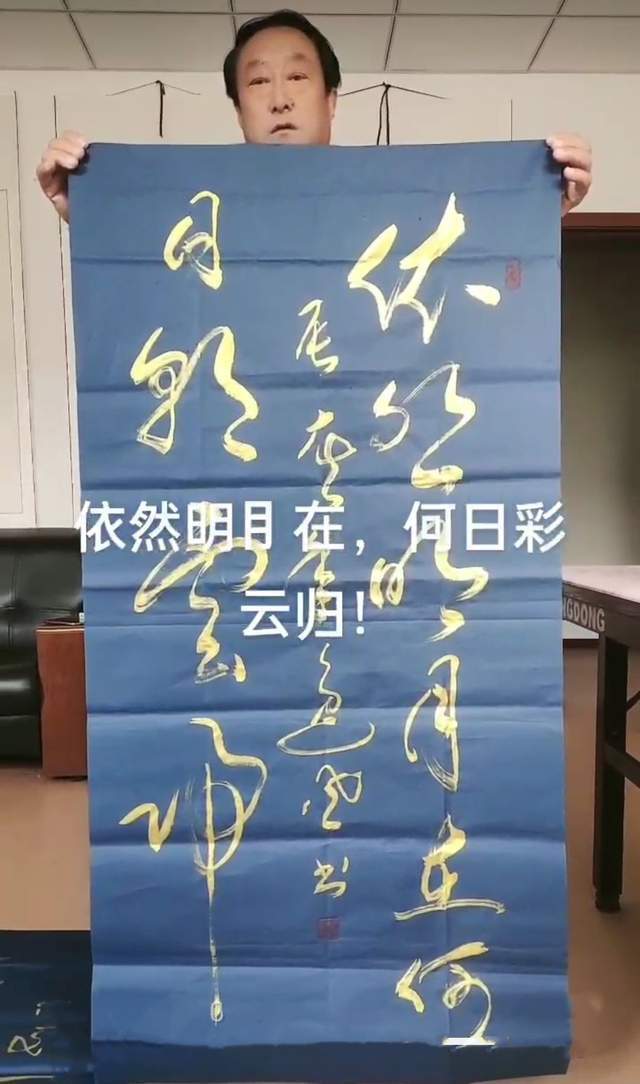 依然明月在何
日彩雲歸
依然明月在，何日彩
云归！
GDONG